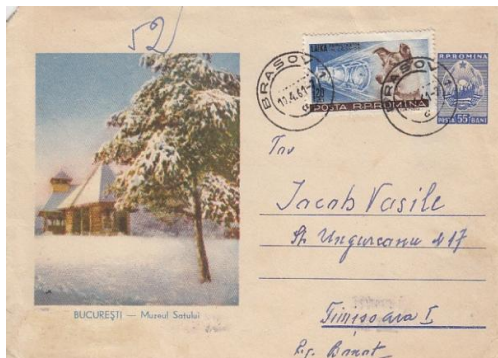 52
LAIKA
POSTA R.P.ROMINA
BRASOV
R.P.ROMINA
POSTA 55 BANI
Tov
Iacob Vasile
Ungureanu 17
Timisoara I
Reg. Banat
BUCUREȘTI — Muzeul Satului